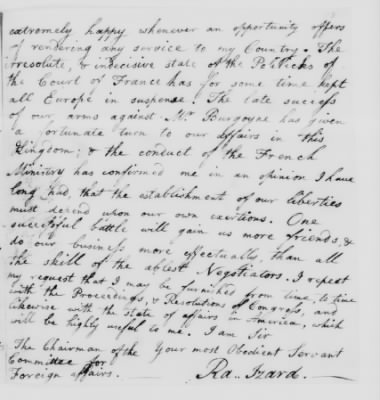 extremely happy whenever an opportunity offers
of rendering any service to my Country. The
irresolute, & indecisive state of the Politicks of
the Court of France has for some time kept
all Europe in suspence. The late success
of our arms against Mr. Burgoyne has given
a fortunate turn to our affairs in this
Kingdom; & the conduct of the French
Ministry has confirmed me in an opinion I have
long had, that the establishment of our liberties
must depend upon our own exertions. One
successful battle will gain us more friends, &
do our business more effectually, than all
the skill of the ablest Negotiators. I repeat
my request that I may be furnished from time to time
with the Proceedings, & Resolutions of Congress, and
likewise with the state of affairs in America, which
will be highly useful to me. I am Sir
The Chairman of the Your most Obedient Servant
Committee for
Foreign affairs. Ra. Izard.